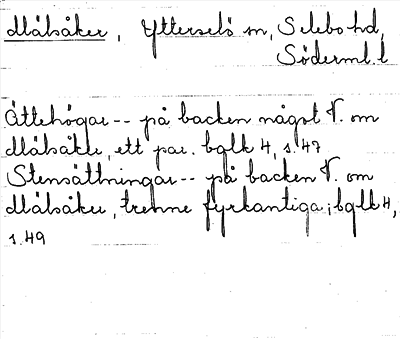 Målsåker, Ytterselö sn, Selebo hd,
Söderml. l
Ättehögar -- på backen något V. om
Målsåker, ett par. bglk 4, s. 47
Stensättningar -- på backen V. om
Målsåker, trenne fyrkantiga; bglk 4,
s. 49